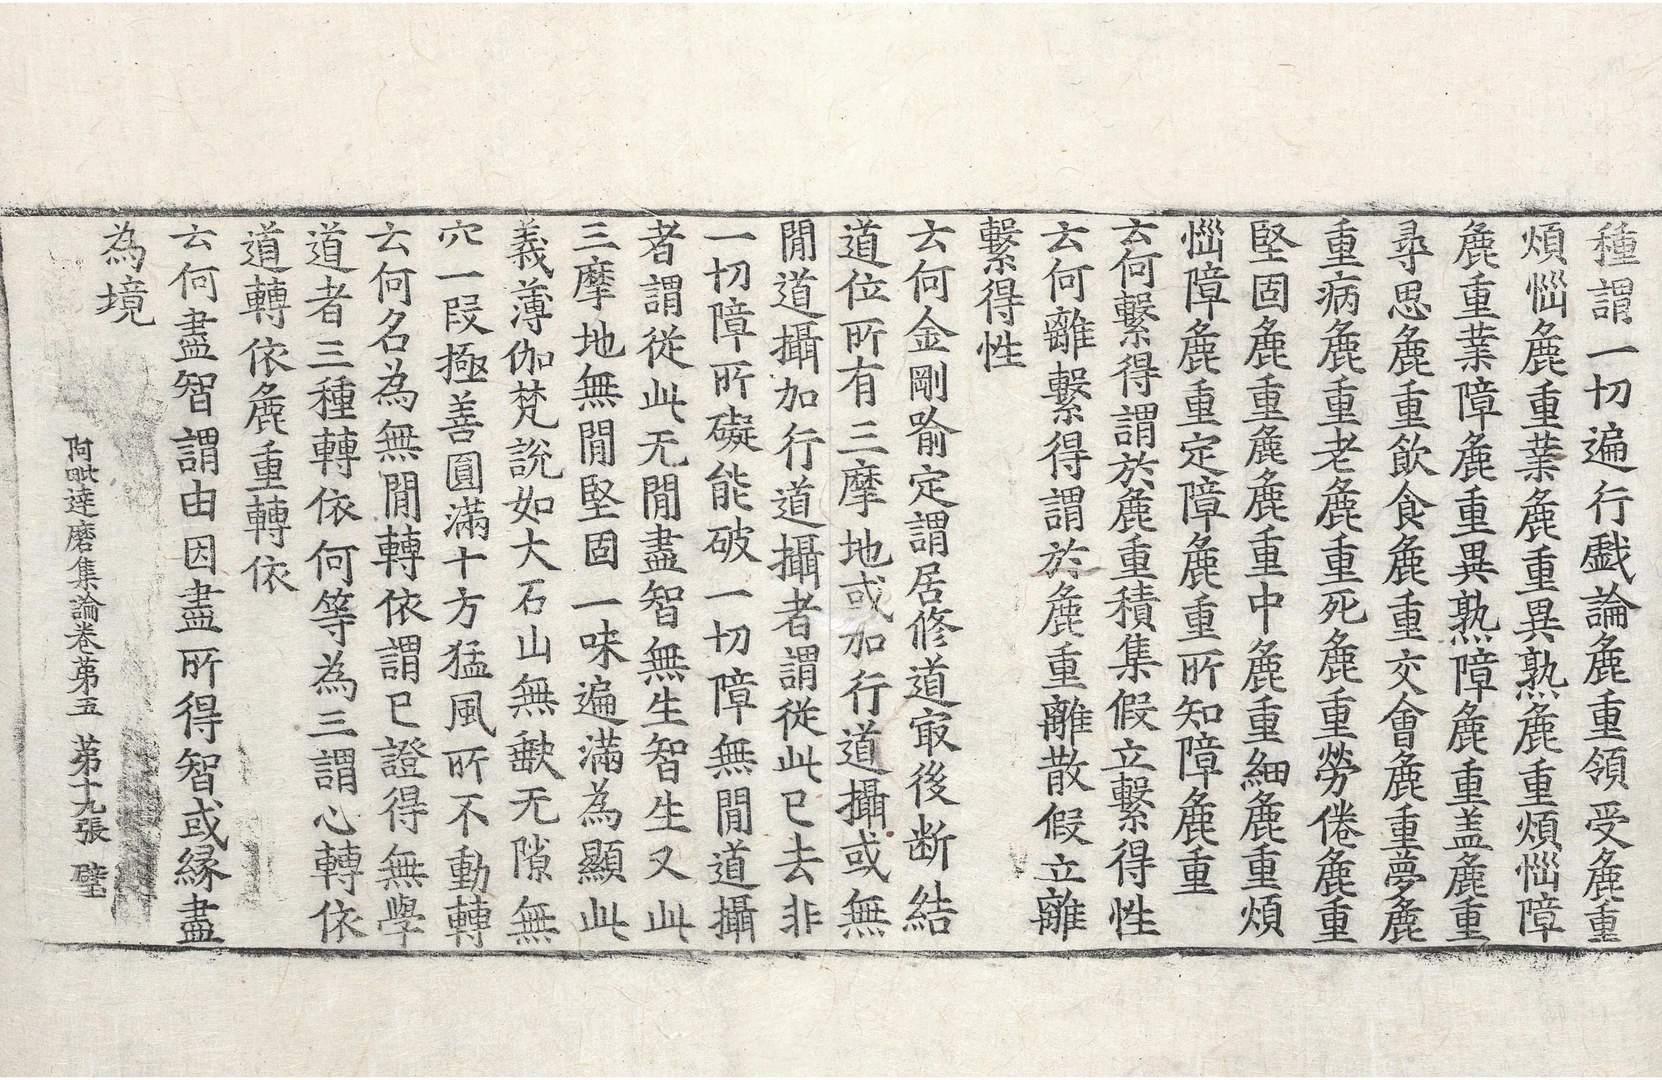 種謂一切遍行戱論麁重領受麁重
煩惱麁重業麁重異熟麁重煩惱障
麁重業障麁重異熟障麁重盖麁重
尋思麁重飮食麁重交會麁重夢麁
重病麁重老麁重死麁重勞倦麁重
堅固麁重麁麁重中麁重細麁重煩
惱障麁重定障麁重所知障麁重
云何繫得謂於麁重積集假立繫得性
云何離繫得謂於麁重離散假立離
繫得性
云何金剛喩定謂居修道冣後断結
道位所有三摩地或加行道攝或無
閒道攝加行道攝者謂從此已去非
一切障所礙能破一切障無閒道攝
者謂從此无閒盡智無生智生又此
三摩地無閒堅固一味遍滿為顯此
義薄伽梵說如大石山無𡙇无隙無
穴一段極善圓滿十方猛風所不動轉
云何名為無閒轉依謂已證得無學
道者三種轉依何等為三謂心轉依
道轉依麁重轉依
云何盡智謂由因盡所得智或縁盡
為境
阿毗達磨集論卷第五 第十九張 璧